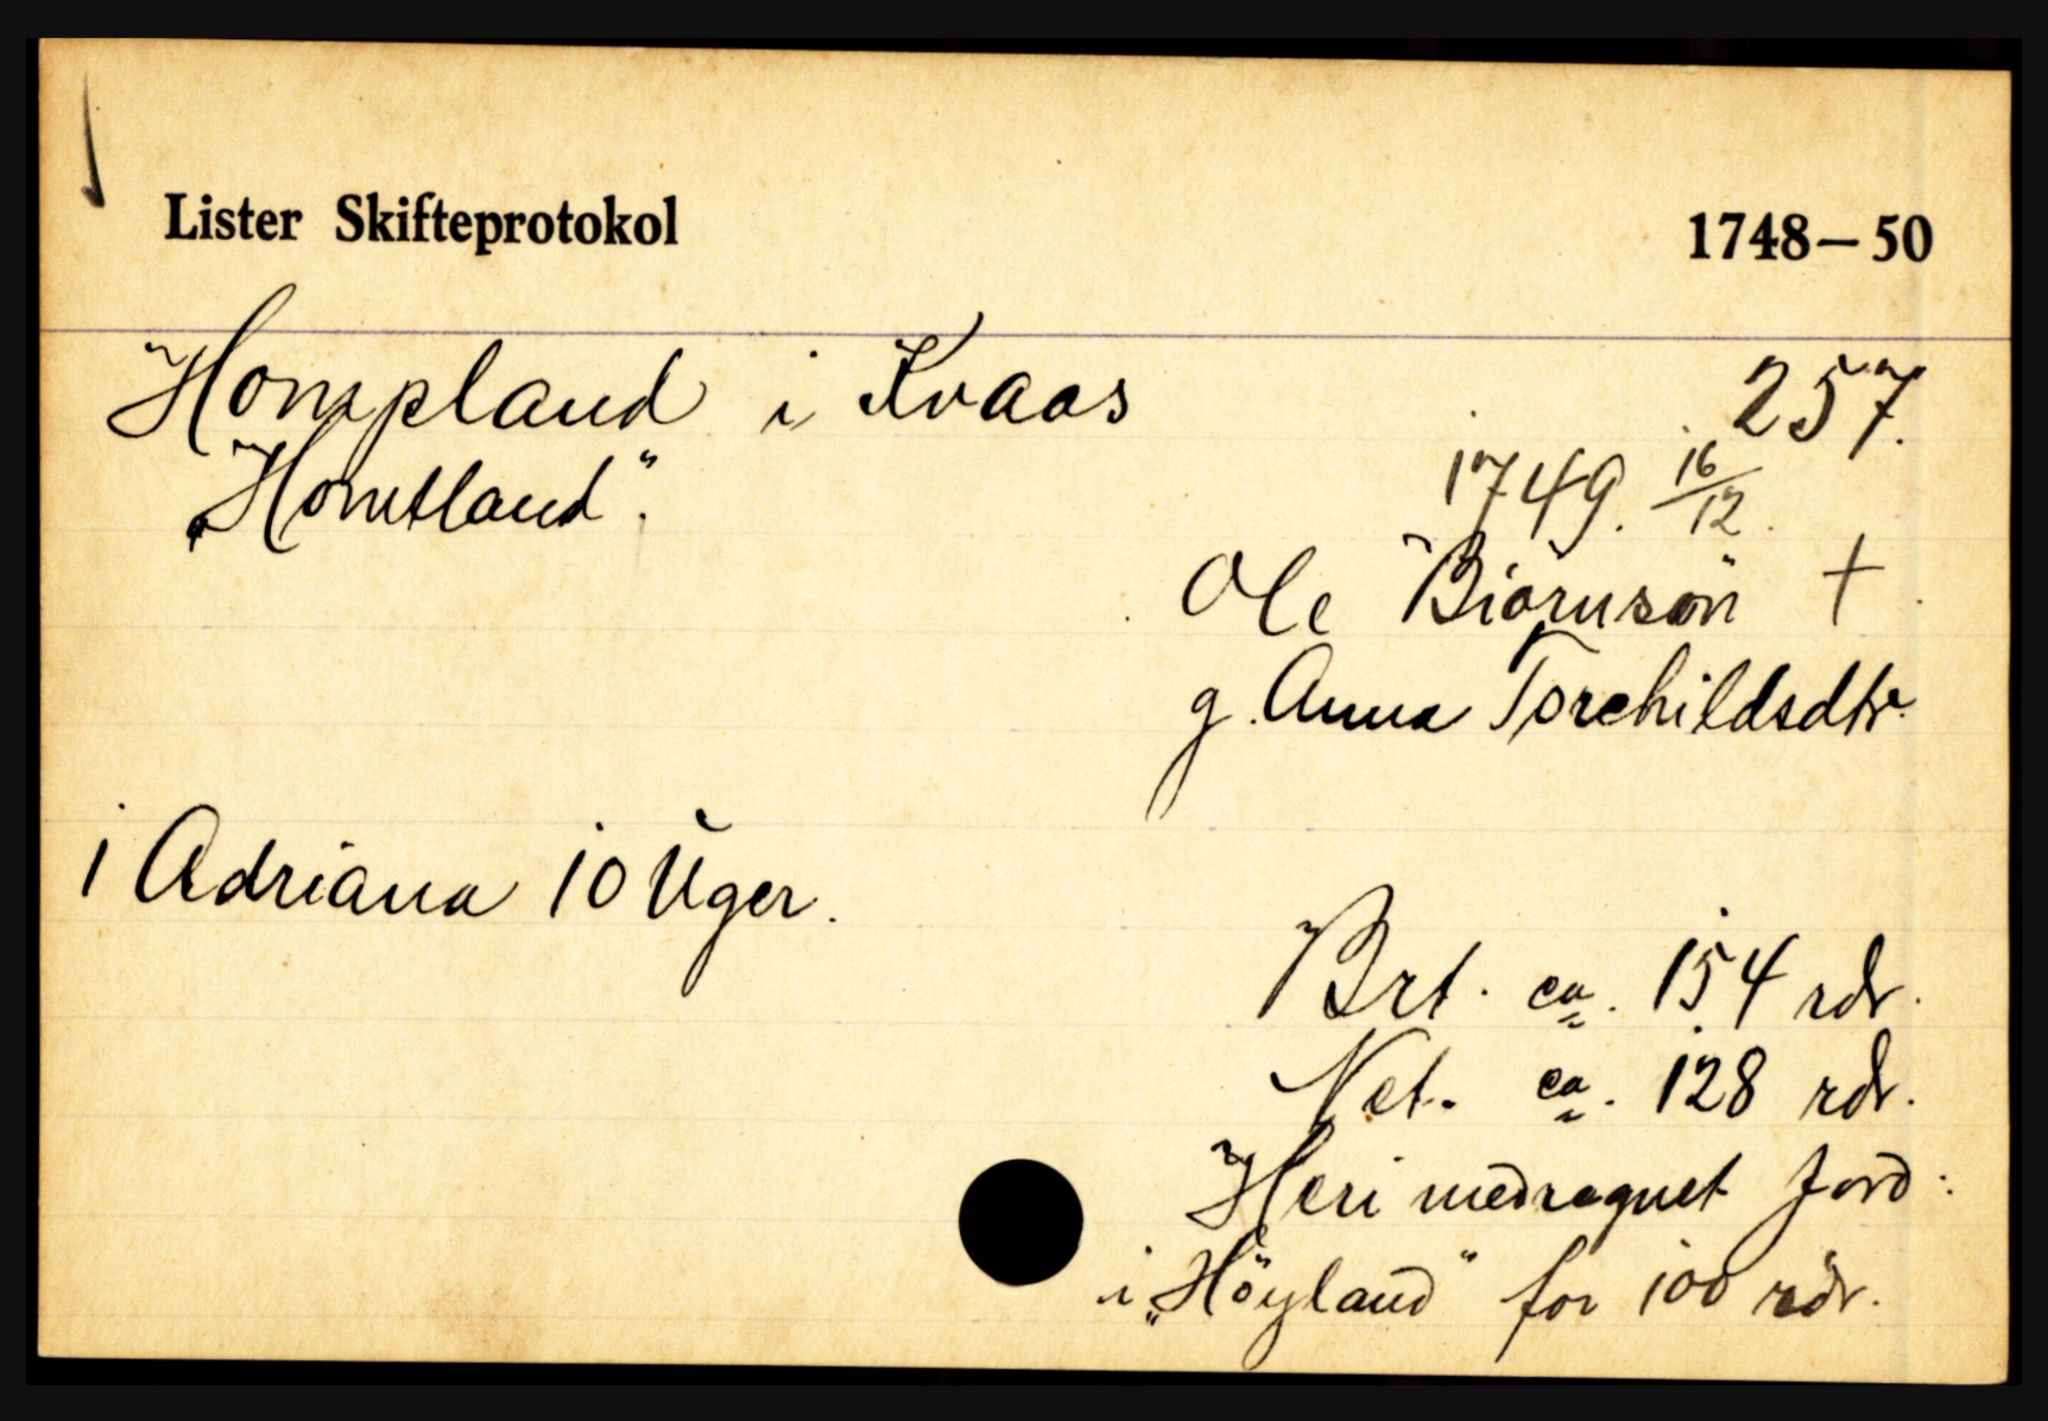 Lister Skifteprotokol 1748–50
Hompland i Kvaas 257.
"Homtland". 1749. 16/12.
Ole Biörnsön †
g. Anna Torchildsdtr.
1 Adriana 10 Uger.
Brt. ca. 154 rdr.
Net. ca. 128 rdr.
Heri medregnet Jord:
i „Höyland" for 100 rdr.